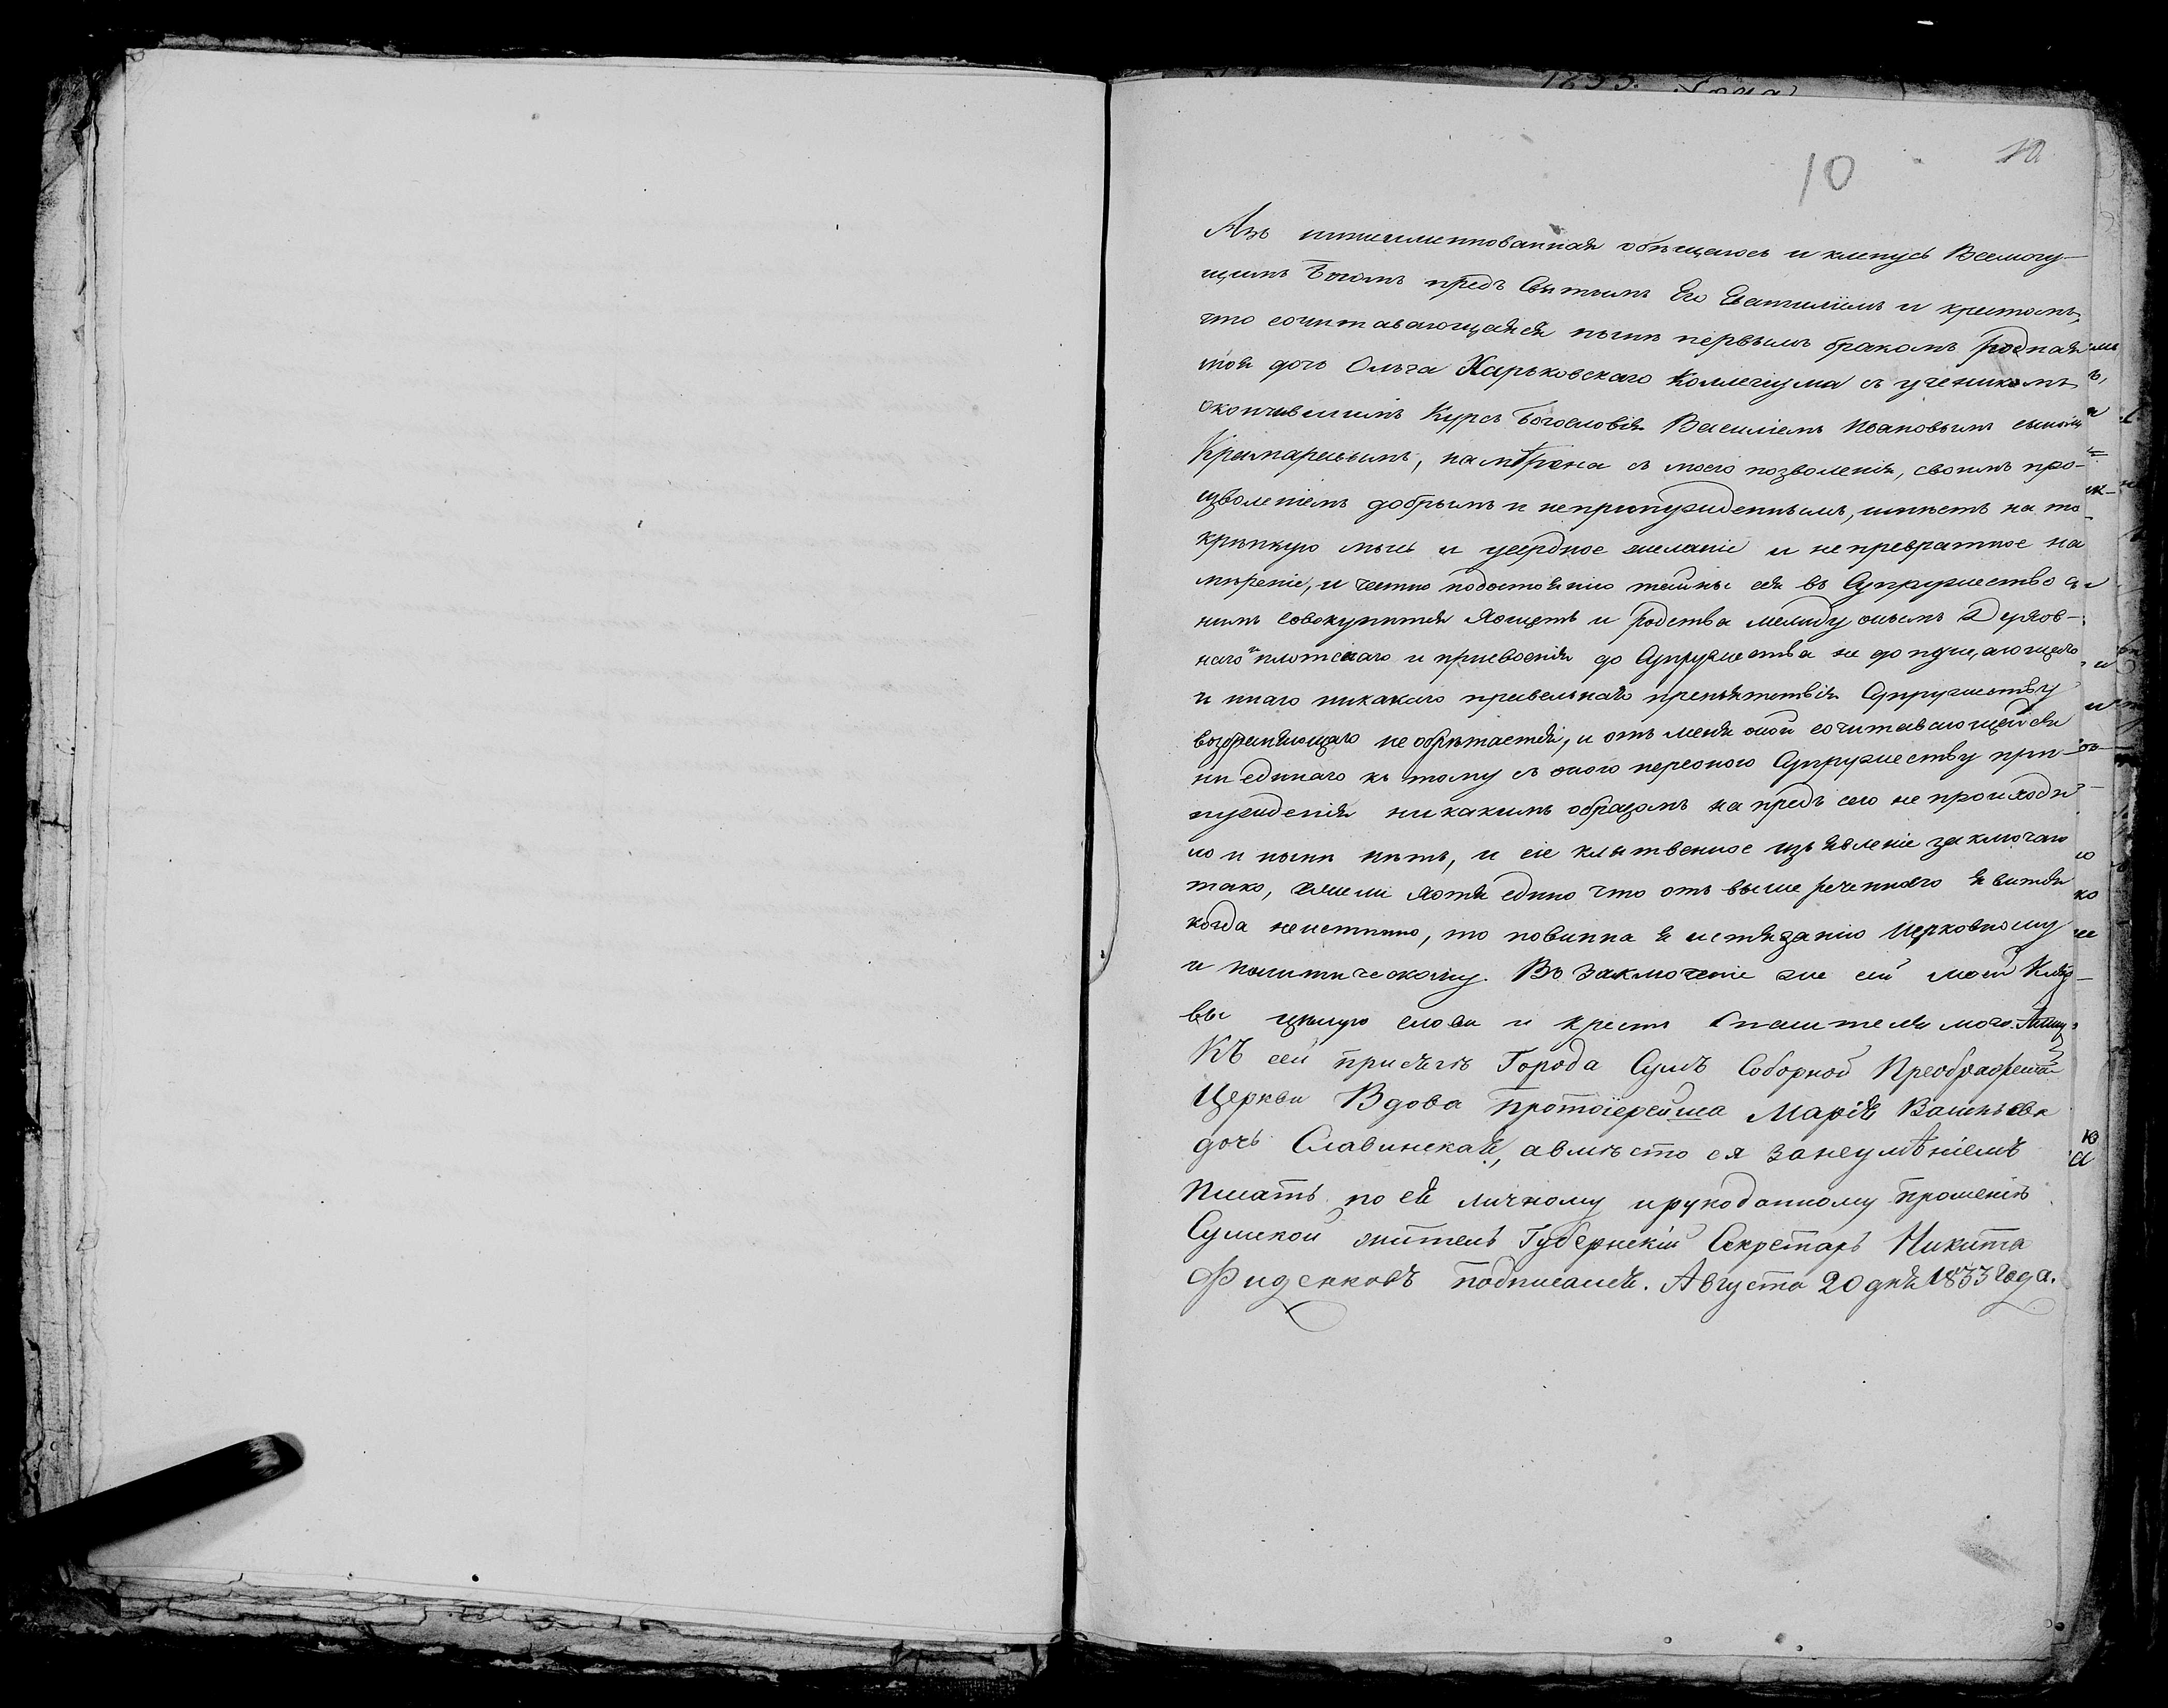 10
10
Азъ нижеименнованная обѣщаюсь и кленусь Всемогу-
щимъ Богомъ предъ Святымъ Его Евангеліемъ и крестомъ,
что сочитавающаяся нынѣ первымъ бракомъ родная
моя дочь Ольга Харьковскаго Коллегіума съ ученикомъ
окончившимъ Курсъ Богословія Василіемъ Ивановымъ сыномъ
Крамаревымъ, намѣрена съ моего позволенія, своимъ про-
изволеніемъ добрымъ и непринужденнымъ, имѣетъ на то
крѣпкую мысь и усердное желаніе и непревратное на
мѣреніе, и честно подостоянію тайны сея въ Супружество съ
нимъ совокупится хощетъ и родства между онымъ Духов-
наго и плотскаго и присвоенія до Супружества не допущающаго
и инаго никакого правельнаго препятствія Супружеству
возбраняющаго не обрѣтается, и отъ меня оной сочитавающейся
ни единаго къ тому съ оного персоною Супружеству при-
нужденія никакимъ образомъ на предъ сего не происходи
ло и нынѣ нѣтъ, и сіе клятвенное изъявленіе заключаю
тако, ежели хотя едино что отъ выше реченнаго явится
когда неистинно, то повинна я истязанію Церковному
и политическому. Въ заключеніе же сей моей Кля
вы цѣлую слова и крестъ Спасителя моего. Аминь
Къ сей присягѣ Города Сумъ Соборной Преображенской
Церкви Вдова протоіерейша Марія Васильева
дочь Славинская, авмѣсто ея занеумѣніемъ
писать по ея личному ирукоданному прошенію
Сумской житель Губернскій Секретарь Никита
Фиденковъ подписался. Августа 20 дня 1833 года.